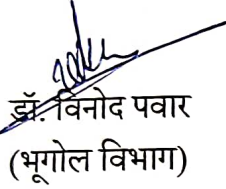 डॉ. विनोद पवार
(भूगोल विभाग)